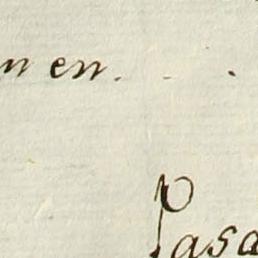 n en. . .
Pasa